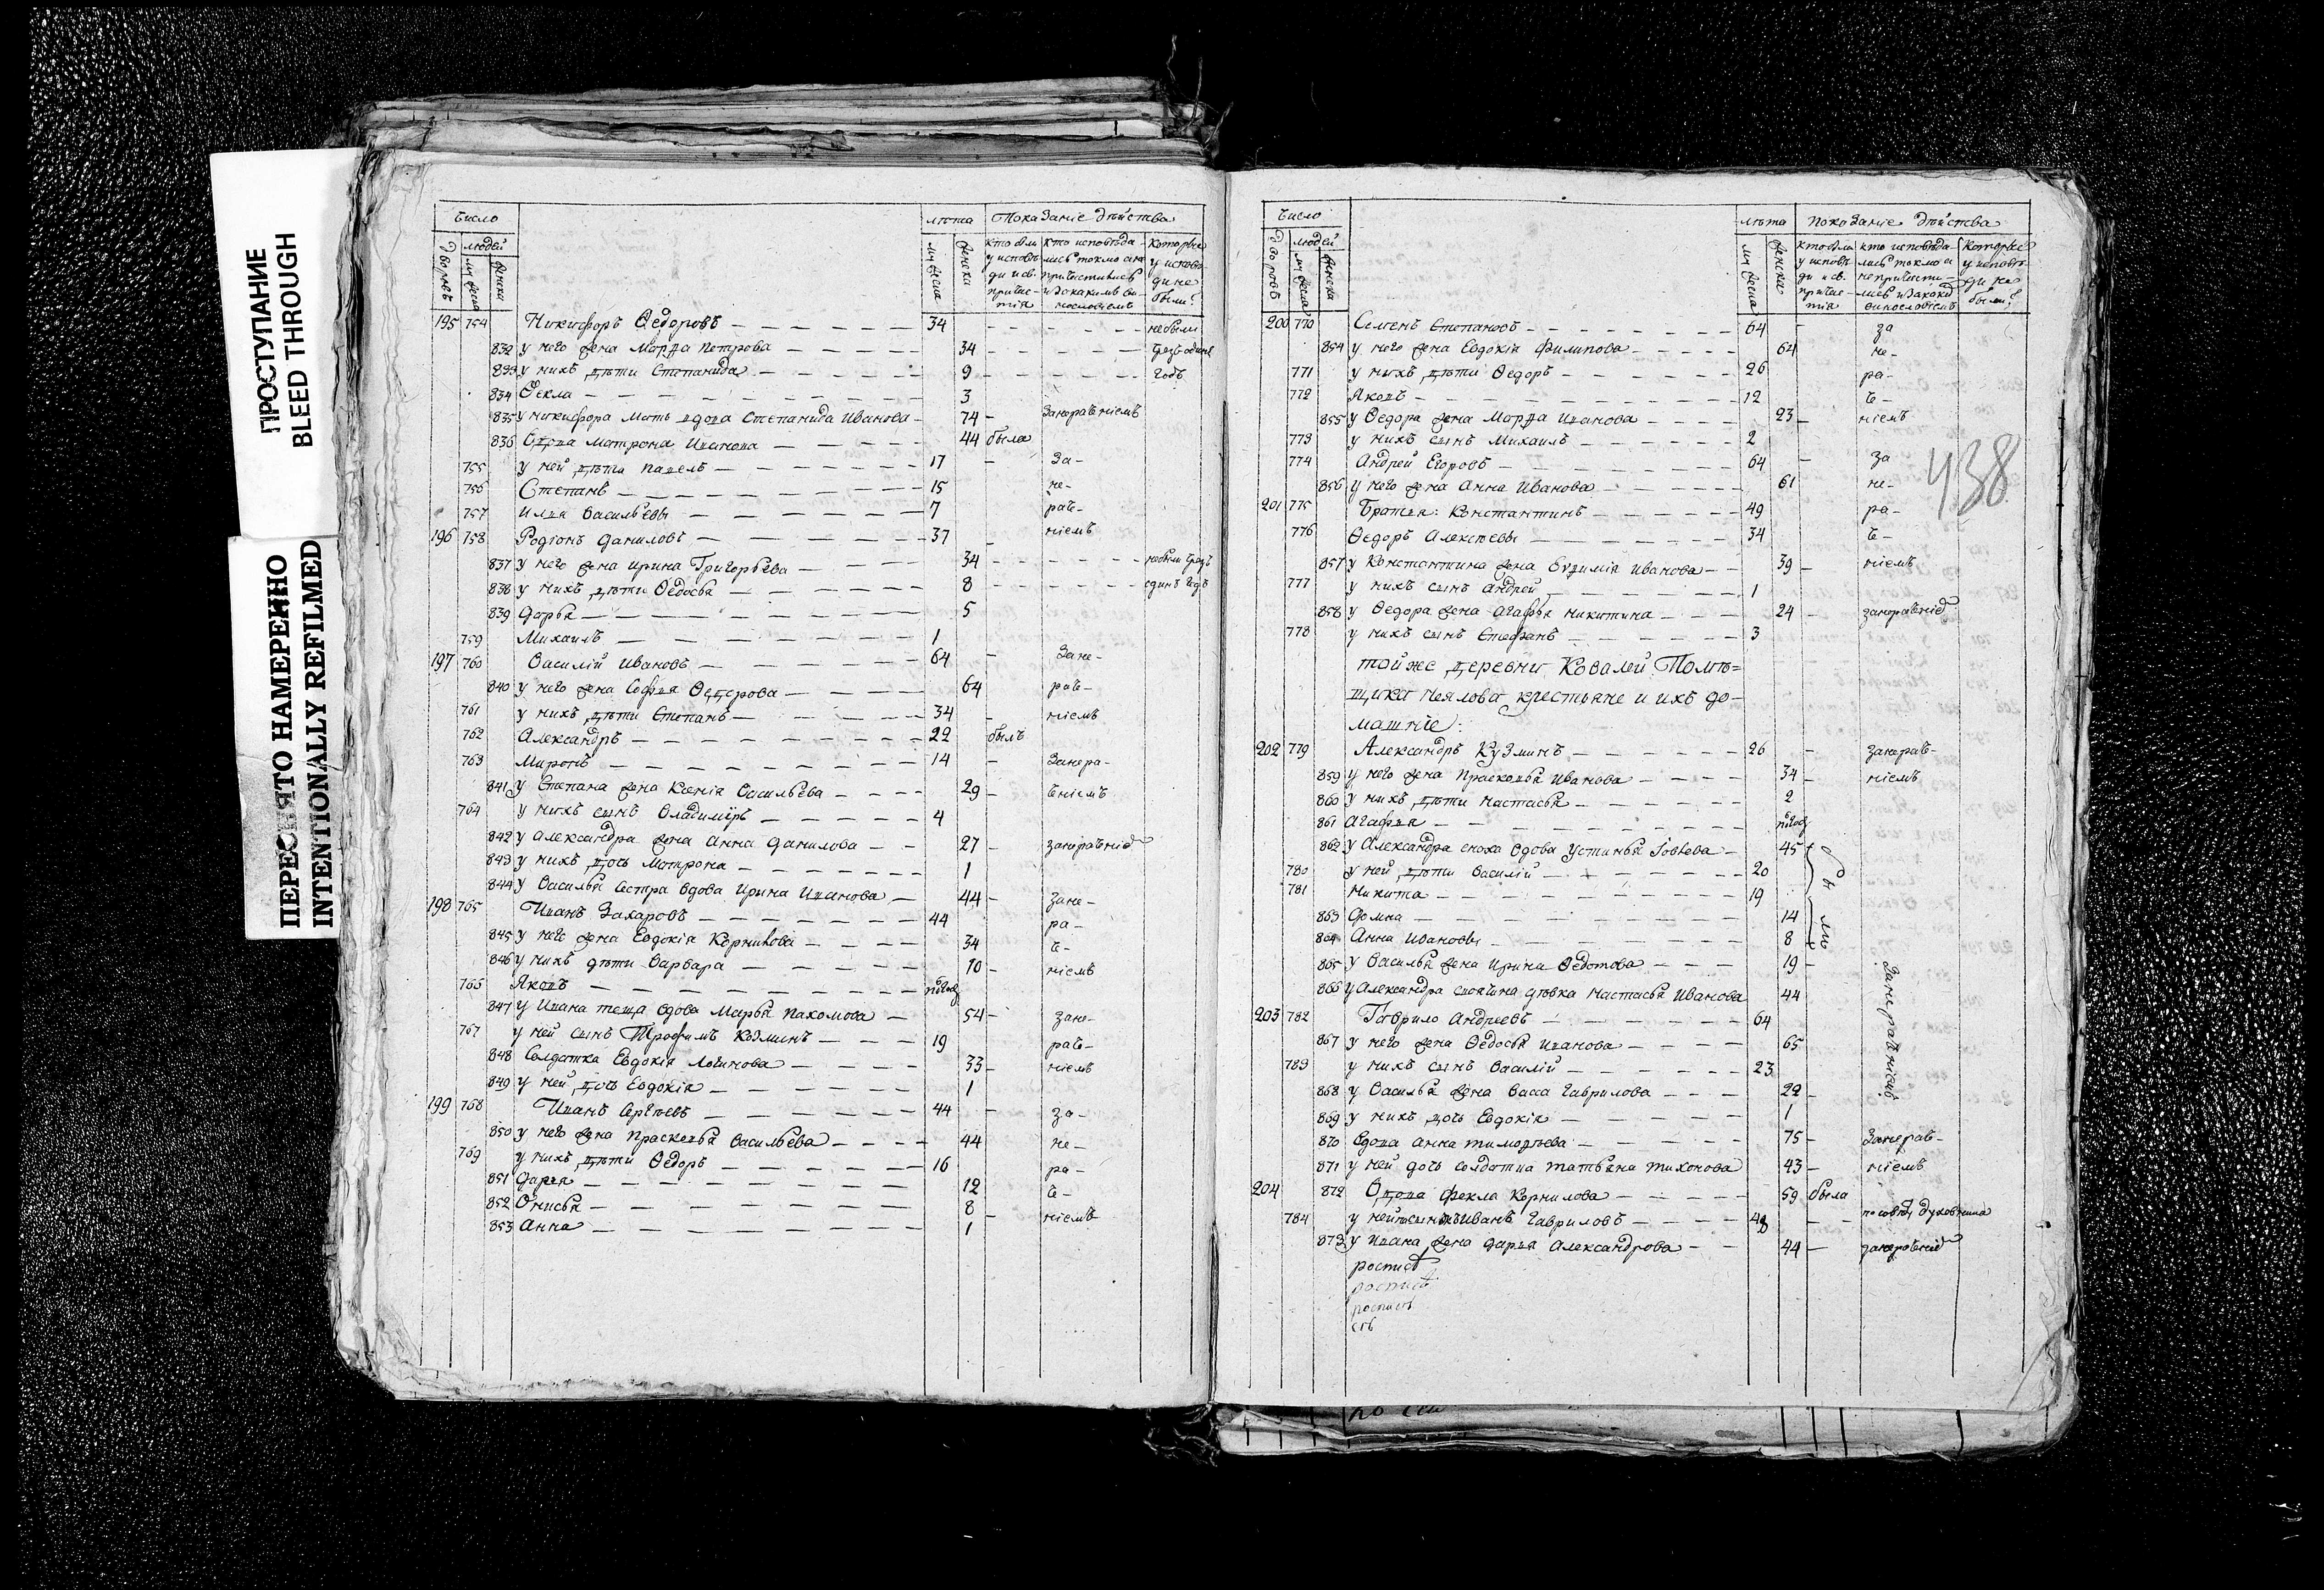 ПРОСТУПАНИЕ
BLEED THROUGH
ПЕРЕСНЯТО НАМЕРЕННО
INTENTIONALLY REFILMED
число | лѣта | Показаніе дѣйства
дворовъ | людей | муска | женска | муска | женска | кто был у исповѣди и св. причастія | кто исповѣдались токмо а не причастились и за какимъ винословіемъ | которые у исповѣди не были?
195 754 Никифоръ Ѳедоровъ — 34 не были
832 у него жена Марѳа Петрова — 34 чрезъ одинъ
833 у нихъ дѣти Степанида — 9 годъ
834 Ѳекла — 3
835 у никифора мать вдова Степанида Иванова — 74 — занерачѣніемъ
836 Вдова матрона Иванова — 44 была
755 у ней дѣти павелъ — 17 — За-
756 Степанъ — 15 не-
757 илья Васильевы — 7 рач-
196 758 Родіонъ Даниловъ — 37 ніемъ
837 у него жена ирина Григорьева — 34 — не были чрезъ
838 у нихъ дѣти Ѳедосья — 8 — одинъ годъ
839 Дарья — 5
759 Михаилъ — 1
197 760 Василій Ивановъ — 64 — Зане-
840 у него жена Софья Ѳедорова — 64 рач-
761 у нихъ дѣти Степанъ — 34 — ніемъ
762 Александръ — 22 былъ
763 Миронъ — 14 — Занера-
841 у Степана жена Ксенія Васильева — 29 — чніемъ
764 у нихъ сынъ Владимиръ — 4
842 у Александра жена Анна Данилова — 27 — занерачніе
843 у нихъ дочь Мотрона — 1
844 у Василья сестра вдова Ирина Иванова — 44 — Зане-
198 765 Иванъ Захаровъ — 44 ра-
845 у него жена Евдокія Корнилова — 34 ч-
846 у нихъ дѣти Варвара — 10 — ніемъ
766 Яковъ — полгод
847 у Ивана теща вдова Марья Пахомова — 54 — зане-
767 у ней сынъ Трофимъ Козминъ — 19 рач-
848 Солдатка Евдокія Логинова — 33 — ніемъ
849 у ней дочь Евдокія — 1
199 768 Иванъ Сергѣевъ — 44 — за-
850 у него жена Прасковья Васильева — 44 не-
769 у нихъ дѣти Ѳедоръ — 16 ра-
851 Дарья — 12 ч-
852 Онисья — 8 ніемъ
853 Анна — 1
438
число | лѣта | показаніе дѣйства
дворовъ | людей | муска | женска | муска | женска | кто были у исповѣди и св. причастія | кто исповѣдались токмо а не причастились и за каким винословіемъ | которые у исповѣди не были?
200 770 Семенъ Степановъ — 64 — за
854 у него жена Евдокія Филипова — 64 не-
771 у нихъ дѣти Ѳедоръ — 26 ра-
772 Яковъ — 12 ч-
855 у Ѳедора жена Марѳа Иванова — 23 — ніемъ
773 у нихъ сынъ Михаилъ — 2
774 Андрей Егоровъ — 64 — за
856 у него жена Анна Иванова — 61 не-
201 775 Братья: Константинъ — 49 ра-
776 Ѳедоръ Алексѣевы — 34 ч-
857 у Константина жена Евфимія Иванова — 39 — ніемъ
777 у нихъ сынъ Андрей — 1
858 у Ѳедора жена Агафья Никитина — 24 — занерачніе
778 у нихъ сынъ Стефанъ — 3
той же деревни Ковалей Помѣ=
щика Неялова крестьяне и ихъ до=
машніе:
202 779 Александръ Кузминъ — 26 — занерач-
859 у него жена Прасковья Иванова — 34 — ніемъ
860 у нихъ дѣти Настасья — 2
861 Агафья — полгод
862 у Александра сноха вдова Устинья Говѣева — 45 были
780 у ней дѣти Василій — 20
781 Никита — 19
863 Домна — 14
864 Анна Ивановы — 8
865 у Василья жена Ирина Ѳедотова — 19 — Занерачѣніемъ
866 у Александра своячина дѣвка Настасья Иванова 44
203 782 Гаврило Андреевъ — 64
867 у него жена Ѳедосья Иванова — 65
783 у нихъ сынъ Василій — 23
868 у Василья жена Васса Гаврилова — 22 —
869 у нихъ дочь Евдокія — 1
870 Вдова Анна Тимофѣева — 75 — Занерач-
871 у ней дочь солдатка Татьяна Тихонова — 43 — ніемъ
204 872 Вдова Фекла Корнилова — 59 была
784 у ней сынъ Иванъ Гавриловъ — 48 — по совѣту духовника
873 у Ивана жена Дарья Александрова — 44 — занерачніе
роспись
роспись
роспись
сь